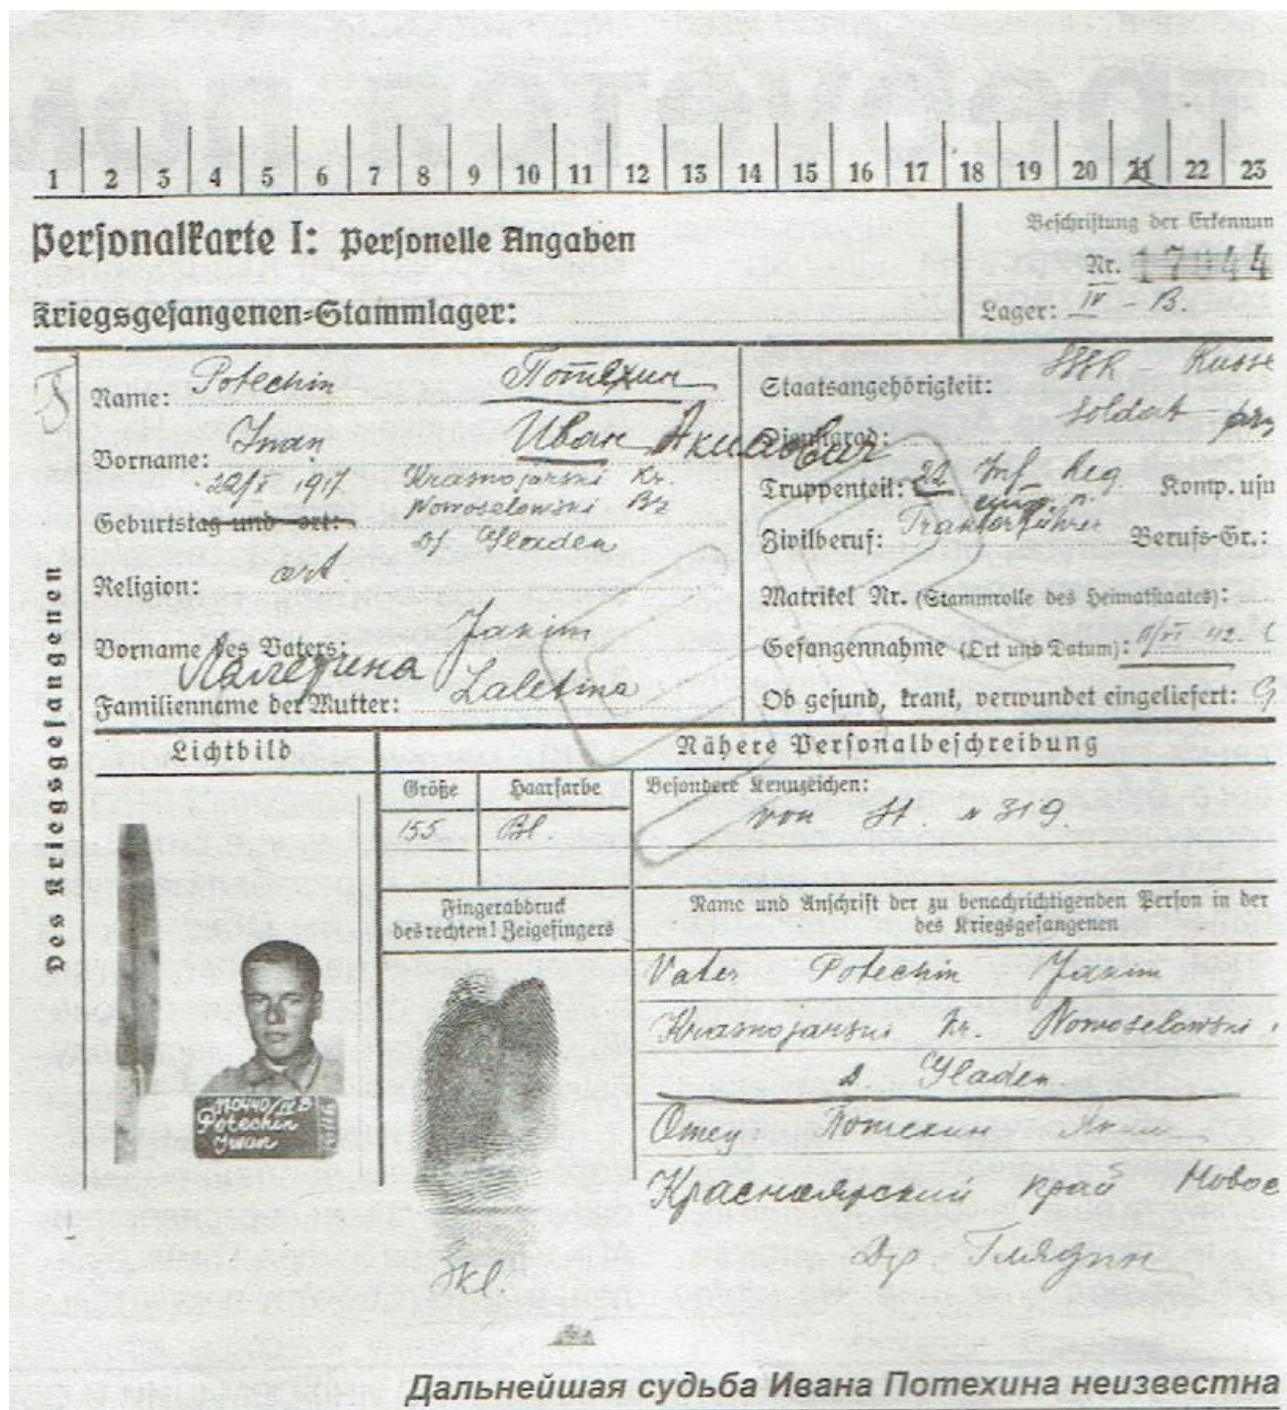 1 2 3 4 5 6 7 8 9 10 11 12 13 14 15 16 17 18 19 20 21 22 23
Personalkarte I: Personelle Angaben
Beschriftung der Erkennun
Nr. 17944
Kriegsgefangenen-Stammlager:
Lager: IV - B.
Des Kriegsgefangenen
Name: Potechin Потехин
Vorname: Iwan Иван Акимович
22/X 1917 Krasnojarski Kr.
Geburtstag und -ort: Nowoselowski Bz
Df Gladen
Religion: ort.
Vorname des Vaters: Jakim
Лалетина
Familienname der Mutter: Laletina
Staatsangehörigkeit: Russe
Dienstgrad: Soldat
Truppenteil: 22 Inf Reg Komp. usw
Zivilberuf: Traktorführer Berufs-Gr.:
Matrikel Nr. (Stammrolle des Heimatstaates):
Gefangennahme (Ort und Datum): 42.
Ob gesund, krank, verwundet eingeliefert: G
Lichtbild
Nähere Personalbeschreibung
Größe Haarfarbe Besondere Kennzeichen:
155 Bl. von St. № 319.
Fingerabdruck
des rechten! Zeigefingers
Name und Anschrift der zu benachrichtigenden Person in der
des Kriegsgefangenen
Vater Potechin Jakim
Krasnojarski Kr. Nowoselowski
D. Gladen.
Отец: Потехин Яким
Красноярский край Новос
Др. Глядин
110440/IV B
Potechin
Iwan
Дальнейшая судьба Ивана Потехина неизвестна